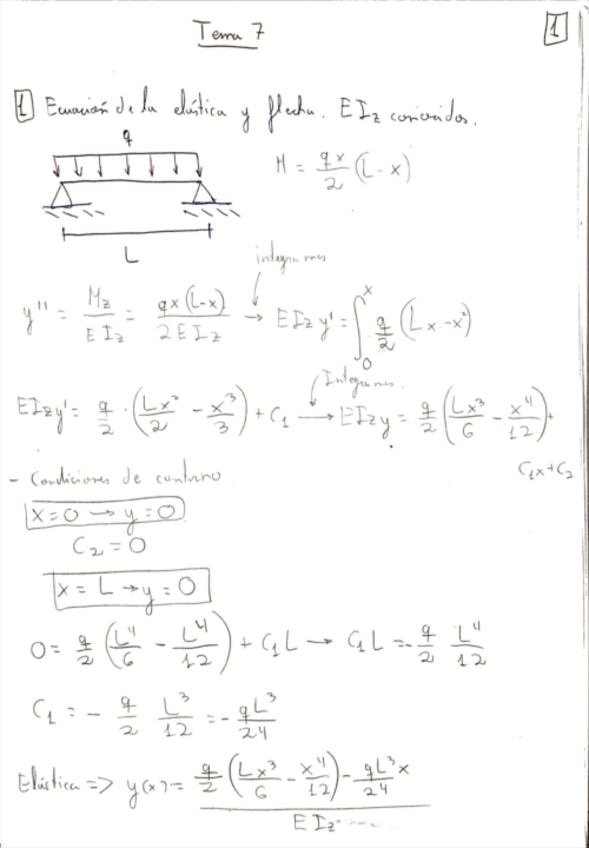 Tema 7
1
1 Ecuación de la elástica y flecha. EIz conocidos.
q
M = qx/2 (L - x)
L
integramos
y'' = Mz/EIz = qx(L-x)/2EIz → EIz y' = ∫₀ˣ q/2 (Lx - x²)
Integramos.
EIzy' = q/2 · (Lx²/2 - x³/3) + C₁ → EIzy = q/2 (Lx³/6 - x⁴/12) +
C₁x + C₂
- Condiciones de contorno
x=0 → y=0
C₂ = 0
x = L → y = 0
0 = q/2 (L⁴/6 - L⁴/12) + C₁L → C₁L = - q/2 L⁴/12
C₁ = - q/2 L³/12 = - qL³/24
Elástica => y(x) = (q/2 (Lx³/6 - x⁴/12) - qL³x/24) / EIz